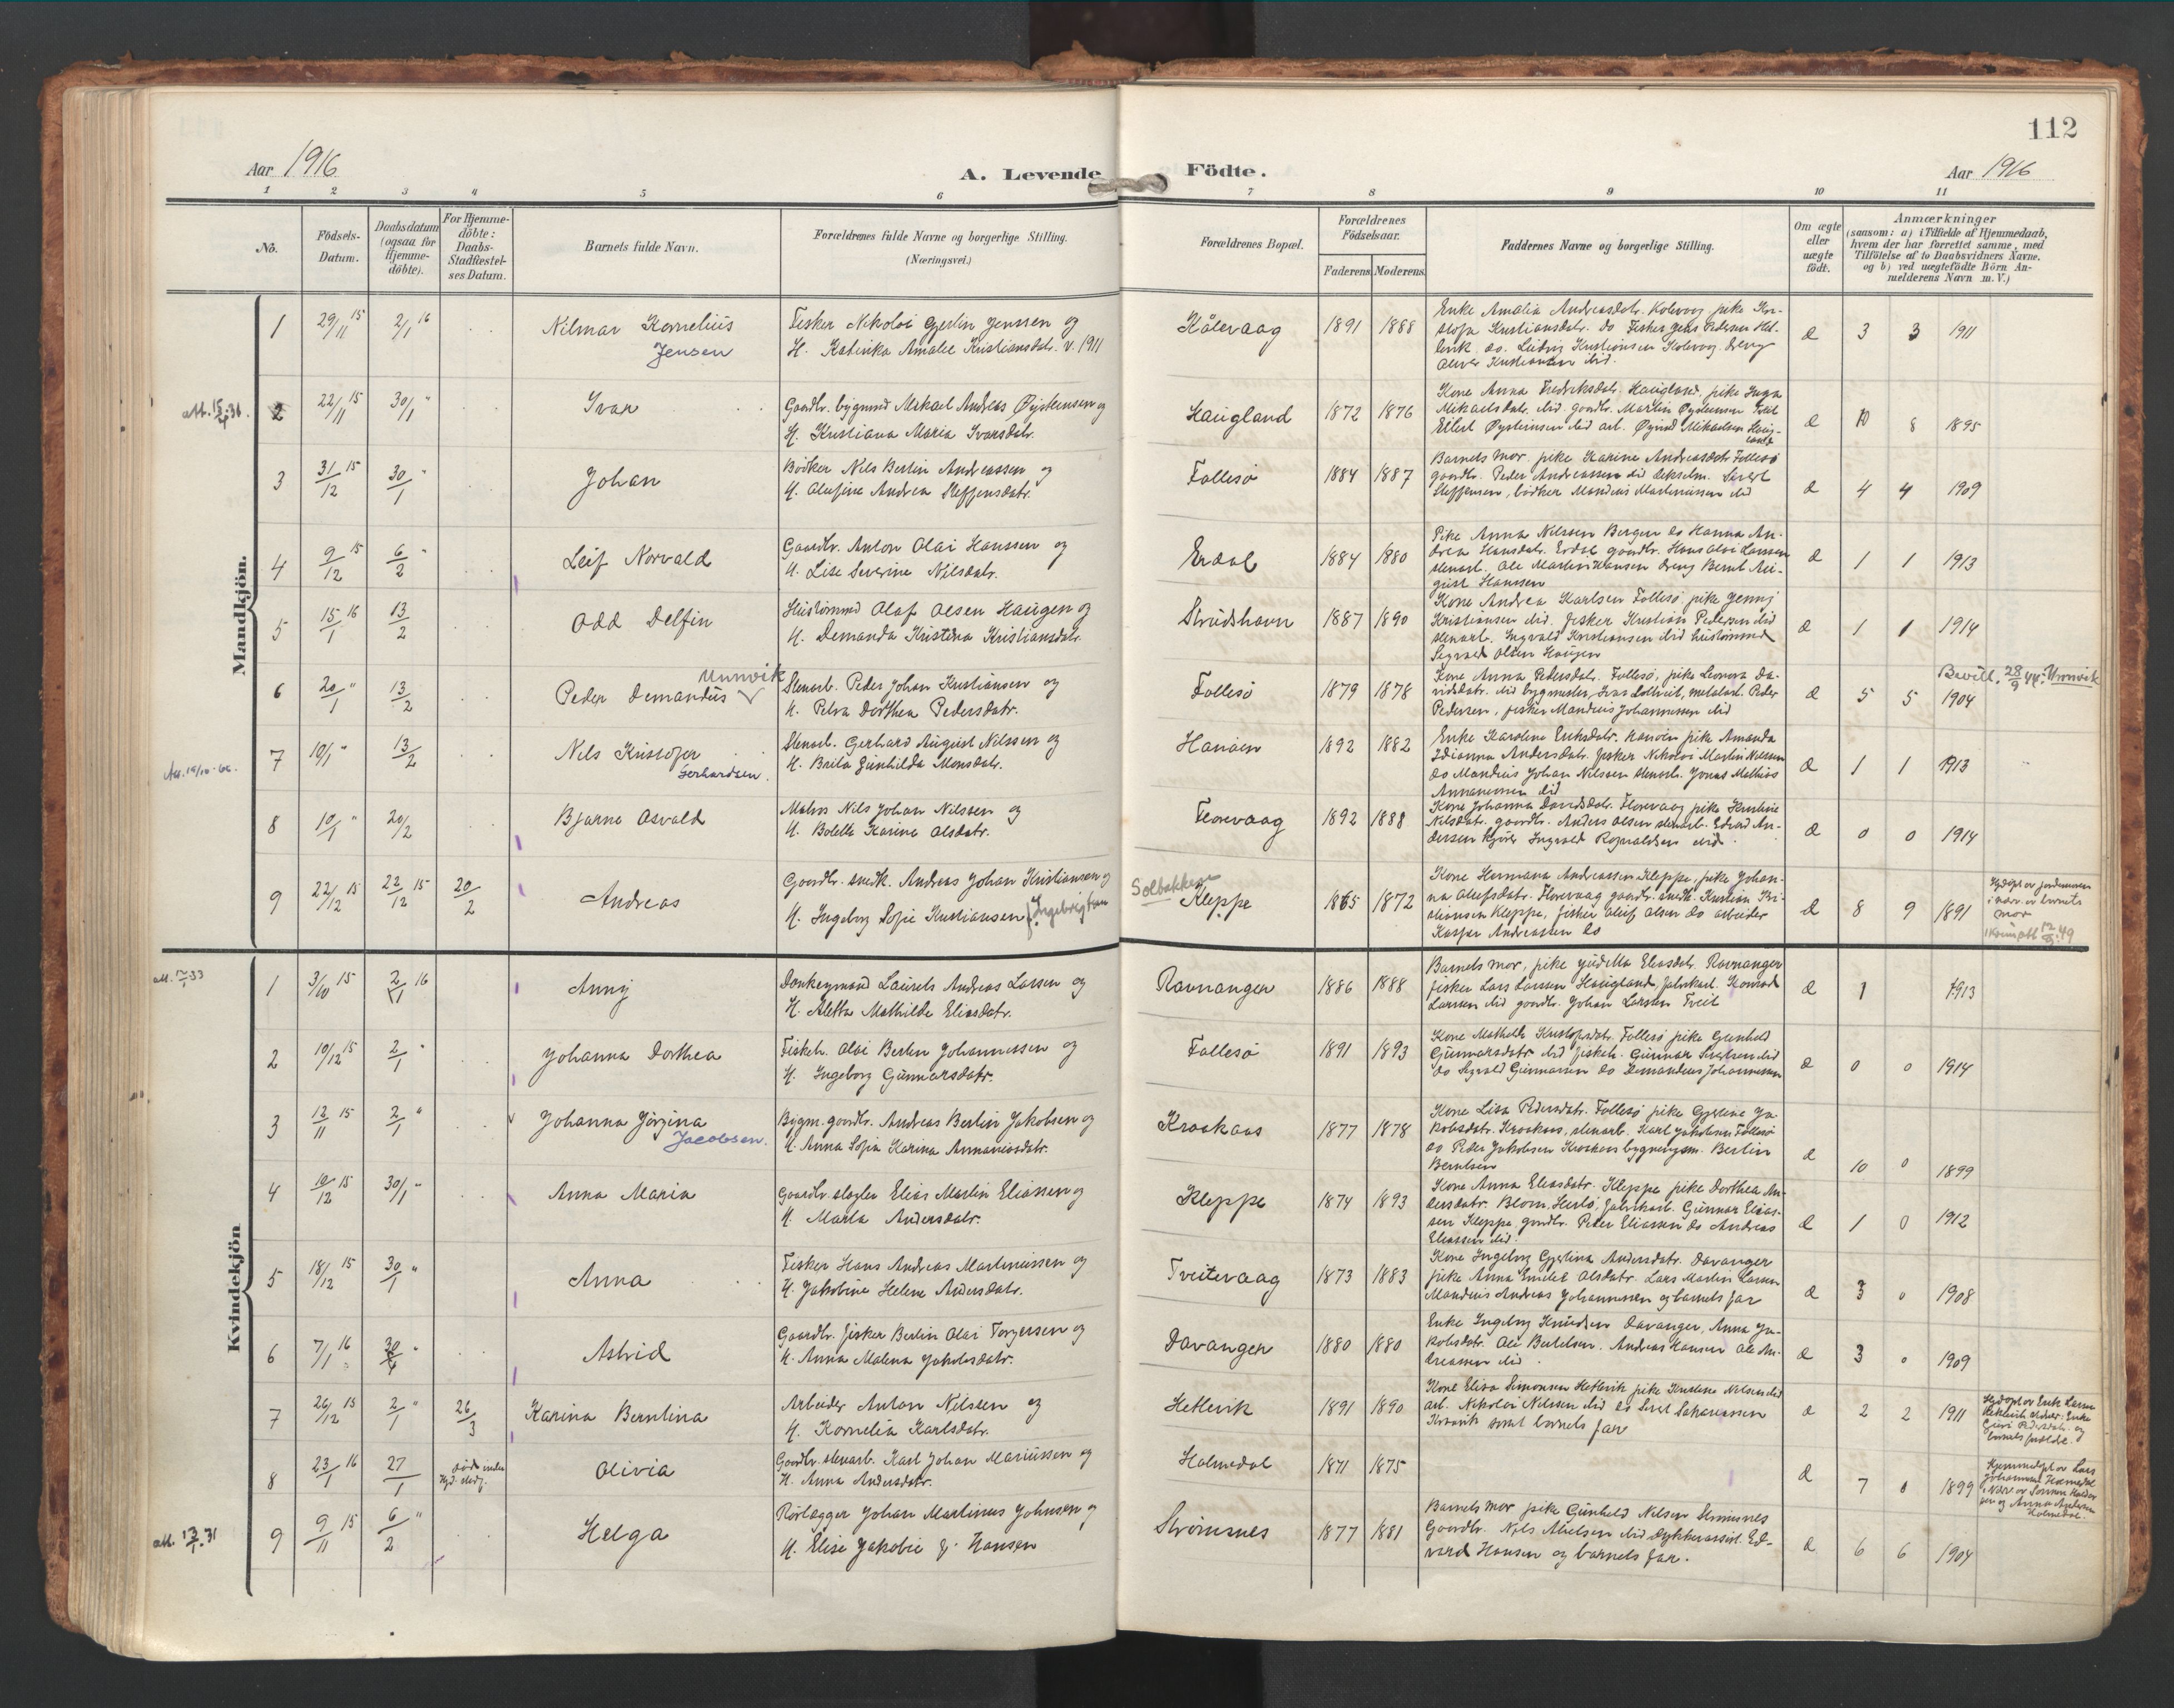 112
Aar 1916
A. Levende Födte.
Aar 1916
1 2 3 4 5 6 7 8 9 10 11
No.
Födsels-Datum.
Daabsdatum (ogsaa for Hjemme-döbte).
For Hjemme-döbte: Daabs-Stadfæstel-ses Datum.
Barnets fulde Navn.
Forældrenes fulde Navne og borgerlige Stilling.
(Næringsvei.)
Forældrenes Bopæl.
Forældrenes Födselsaar.
Faderens Moderens
Faddernes Navne og borgerlige Stilling.
Om ægte eller uægte födt.
Anmærkninger
(saasom: a) i Tilfælde af Hjemmedaab,
hvem der har forrettet samme, med
Tilföielse af to Daabsvidners Navne.
og b) ved uægtefödte Börn An-
melderens Navn m. V.)
Mandkjön.
1 29/11 15 2/1 16 Nilmar Kornelius
Jensen
Fisker Nikolai Gjertin Jenssen og
H. Katinka Amalie Kristiansdatr. v. 1911
Kålevaag 1891 1888
Enke Amalia Andreasdatr. Kolevog pike Kri-
stofa Kristiansdatr. do Fisker Jens Pedersen Het-
levik do. Ludvig Kristiansen Kolevog dreng
Oliver Kristiansen ibid.
æ 3 3 1911
2 22/11 15 30/1 " Ivar
Gaardbr. bygmd Mikael Andreas Øysteinsen og
H. Kristiana Maria Ivarsdatr.
Haugland 1872 1876
Kone Anna Fredriksdatr. Haugland pike Inga
Mikaelsdatr. ibid. gaardbr. Martin Øysteinsen Tveit
Eilert Øysteinsen ibid arb. Øyvind Mikaelsen Haug-
land
æ 10 8 1895
3 31/12 15 30/1 " Johan
Bödker Nils Bertin Andreassen og
H. Olufine Andrea Steffensdatr.
Follesö 1884 1887
Barnets mor. pike Karine Andreasdatr Follesö
gaardbr. Peder Andreassen ibid Sivert
Steffensen, bödker Mandius Martinussen ibid
æ 4 4 1909
4 9/12 15 6/2 " Leif Norvald
Gaardbr. Anton Olai Hanssen og
H. Lise Severine Nilsdatr.
Erdal 1884 1880
Pike Anna Nilssen Bergen do Hanna An-
drea Hansdatr. Erdal gaardbr. Hans Olai Larssen
stenarb. Ole Martin Hansen dreng Bernt Au-
gust Hanssen
æ 1 1 1913
5 15/1 16 13/2 Odd Delfin
Hustömmd Olaf Olsen Haugen og
H. Demanda Kristina Kristiansdatr.
Strudshavn 1887 1890
Kone Andrea Karlsen Follesö pike Jenny
Kristiansen ibid. fisker Kristian Pedersen ibid
stenarb. Ingvald Kristiansen ibid hustömmd
Sigvald Olsen Haugen
æ 1 1 1914
6 20/1 " 13/2 Peder Demandus
Unnvik
Stenarb. Peder Johan Kristiansen og
H. Petra Dorthea Pedersdatr.
Follesö 1879 1878
Kone Anna Pedersdatr. Follesö, pike Leonora Da-
vidsdatr. ibid bygmester, metalarb. Peder
Pedersen, fisker Mandius Johannessen ibid
æ 5 5 1904
Bevill. 28/9 44. Unnvik
7 10/1 " 13/2 Nils Kristofer
Gerhardsen.
Stenarb. Gerhard August Nilssen og
H. Brita Gunhilda Monsdatr.
Hanöen 1892 1882
Enke Karoline Eriksdatr. Hanöen pike Amanda
Idianna Andersdatr. fisker Nikolai Martin Nilssen
do Mandius Johan Nilssen stenarb. Jonas Mathias
Annanissen ibid
æ 1 1 1913
8 10/1 " 20/2 Bjarne Osvald
Matros Nils Johan Nilssen og
H. Bolette Karine Olsdatr.
Florevaag 1892 1888
Kone Johanna Davidsdatr. Florevaag pike Kristine
Nilsdatr. gaardbr. Anders Olsen stenarb. Edvard An-
derssen Ingvald Ragnvaldsen ibid
æ 0 0 1914
9 22/12 15 22/12 15 20/2 Andreas
Gaardbr. snedk. Andreas Johan Kristiansen og
H. Ingeborg Sofie Kristiansen f. Ingebrigtsen
Solbakken
Kleppe 1865 1872
Kone Hermana Andreassen Kleppe, pike Johan-
na Olufsdatr. Florevaag gaardbr. snedk. Kristian Kri-
stiansen Kleppe, fisker Oluf Olsen do arbeider
Kaspar Andreassen do
æ 8 9 1891
Hjdöpt av jordmoren
i nærv. av barnets
mor
Kvindekjön
1 3/10 15 2/1 16 Anny
Donkeymand Laurits Andreas Larsen og
H. Aletta Mathilde Eliasdatr.
Ravnanger 1886 1888
Barnets mor, pike Juditta Eliasdatr. Ravnanger
fisker Lars Larsen Haugland, fabrikarb. Konrad
Larsen ibid gaardbr. Johan Larsen Tveit
æ 1 1913
2 10/12 15 2/1 " Johanna Dorthea
Fiskeh. Olai Bertin Johannessen og
H. Ingeborg Gunnarsdatr.
Follesö 1891 1893
Kone Mathilde Kristofersdatr. Follesö pike Gunhild
Gunnarsdatr ibid fiskeh. Gunnar Sivertsen ibid
do Sigvald Gunnarsen do Demandeus Johannessen
æ 0 0 1914
3 12/11 15 2/1 " Johanna Jörgina
Jacobsen.
Bygm. gaardbr. Andreas Bertin Jakobsen og
H. Anna Sofia Karina Annaniasdatr.
Krokaas 1877 1878
Kone Lisa Pedersdatr. Follesö pike Gjertine Ja-
kobsdatr. Krokaas, stenarb. Karl Jakobsen Follesö
do Peder Jakobsen Krokaas bygningsm. Bertin
Berntsen
æ 10 0 1899
4 10/12 15 30/1 " Anna Maria
Gaardbr. slagter Elias Martin Eliassen og
H. Marta Andersdatr.
Kleppe 1874 1893
Kone Anna Eliasdatr. Kleppe pike Dorthea An-
dersdatr. Blom, Herlö, fabrikarb. Gunnar Elias-
sen Kleppe, gaardbr. Peter Eliassen do Andreas
Eliassen ibid.
æ 1 0 1912
5 18/12 15 30/1 " Anna
Fisker Hans Andreas Martinussen og
H. Jakobine Helene Andersdatr.
Tveitevaag 1873 1883
Kone Ingeborg Gjertina Andersdatr. Davanger
pike Anna Emilie Olsdatr. Lars Martin Larsen
Mandius Andreas Johannessen og barnets far
æ 3 0 1908
6 7/1 16 Astrid
Gaardbr. fisker Bertin Olai Torgersen og
H. Anna Malena Jakobsdatr.
Davanger 1880 1880
Enke Ingeborg Knudsen Davanger, Anna Ja-
kobsdatr. Ole Bertelsen. Andreas Hansen Ole An-
dreassen ibid.
æ 3 0 1909
7 26/12 15 2/1 " 26/3 Karina Berntina
Arbeider Anton Nilsen og
H. Kornelia Karlsdatr.
Hetlevik 1891 1890
Kone Elisa Simonsen Hetlevik pike Kristine Nilsen ibid
arb. Nikolai Nilssen ibid do Sivert Sakariassen
samt barnets far
æ 2 2 1911
8 23/1 16 27/1 Olivia
Gaardbr. stenarb. Karl Johan Mariussen og
H. Anna Andersdatr.
Holmedal 1871 1875
æ 7 0 1899
Hjemmedöpt av Lars
Johannes Holmedal
9 9/11 15 6/2 " Helga
Rörlægger Johan Martinus Johnsen og
H. Elise Jakobie f. Hansen
Strömsnes 1877 1881
Barnets mor pike Gunhild Nilsen Strömsnes
Gaardbr. Nils Nielsen ibid dykkerassist. Ed-
vard Hansen og barnets far.
æ 6 6 1904